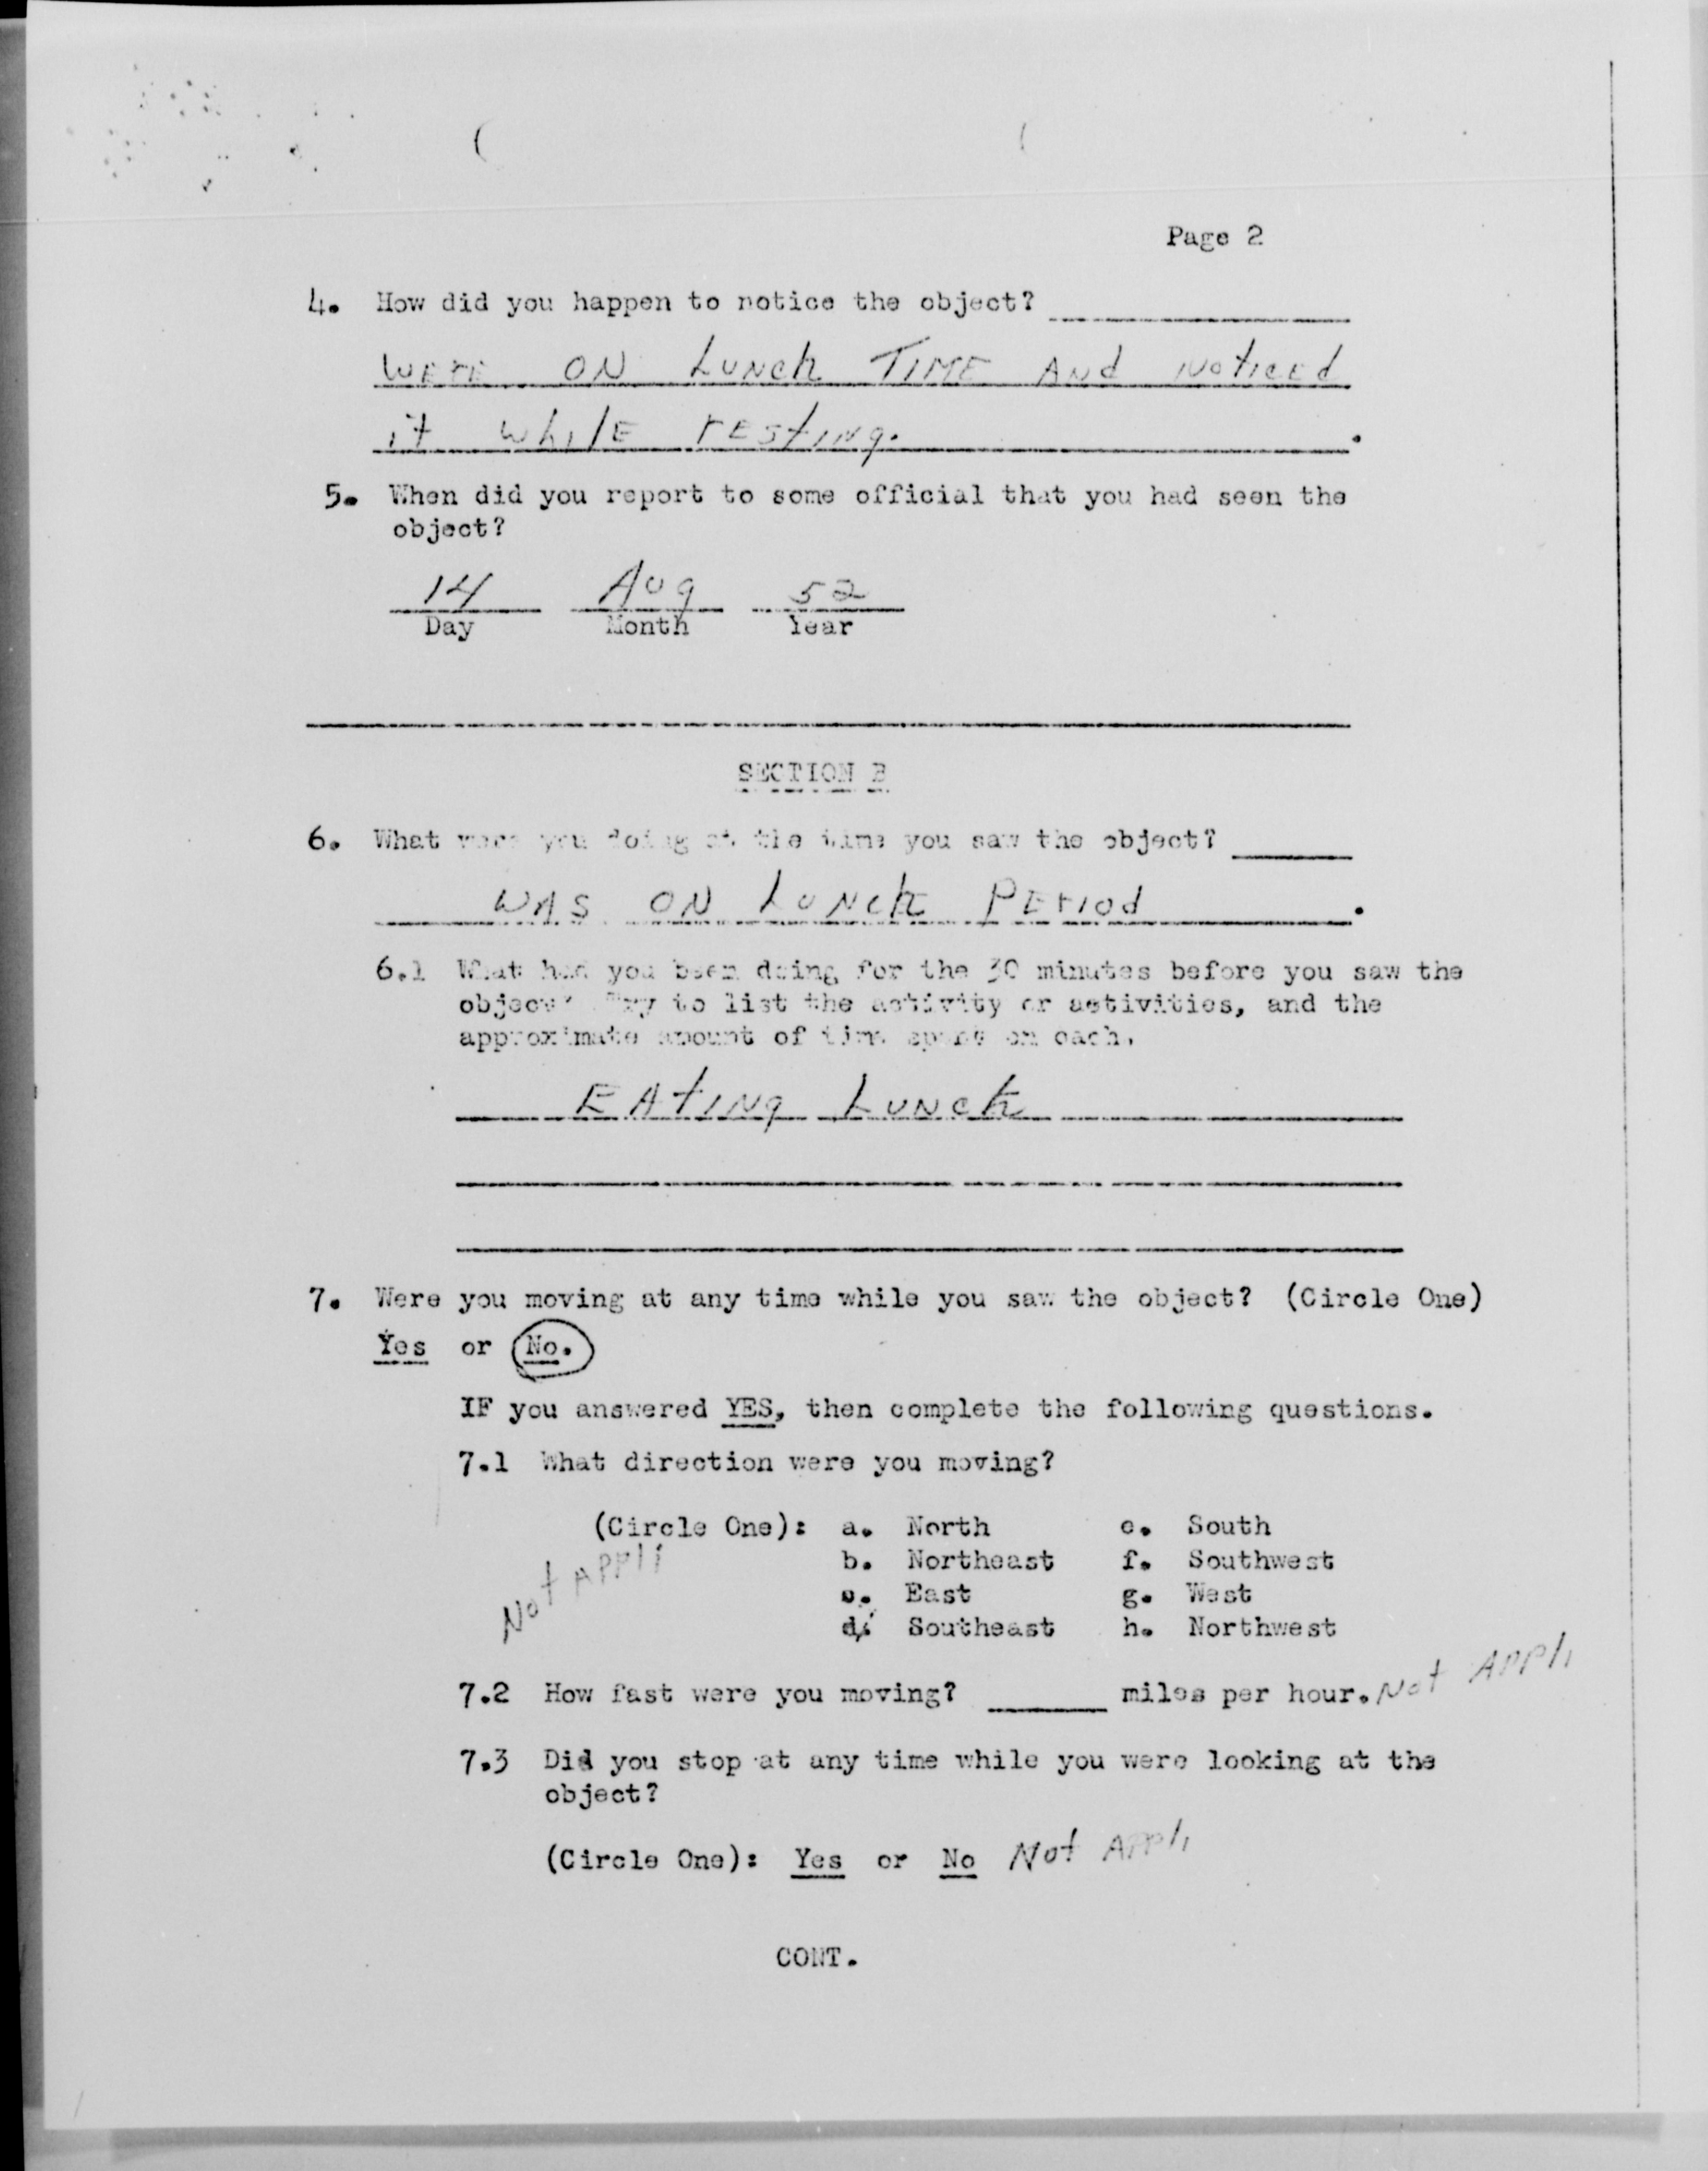 Page 2
4. How did you happen to notice the object?
WERE ON LUNCh TIME ANd Noticed
it whilE rEstiNg.
5. When did you report to some official that you had seen the
object?
14 Aug 52
Day Month Year
SECTION B
6. What were you doing at the time you saw the object?
WAS ON LUNch PEriod.
6.1 What had you been doing for the 30 minutes before you saw the
object? Try to list the activity or activities, and the
approximate amount of time spent on each.
EAtiNg LUNch
7. Were you moving at any time while you saw the object? (Circle One)
Yes or No.
IF you answered YES, then complete the following questions.
7.1 What direction were you moving?
(Circle One): a. North e. South
b. Northeast f. Southwest
c. East g. West
d. Southeast h. Northwest
Not APPli
7.2 How fast were you moving? miles per hour. Not APPli
7.3 Did you stop at any time while you were looking at the
object?
(Circle One): Yes or No Not APPli
CONT.